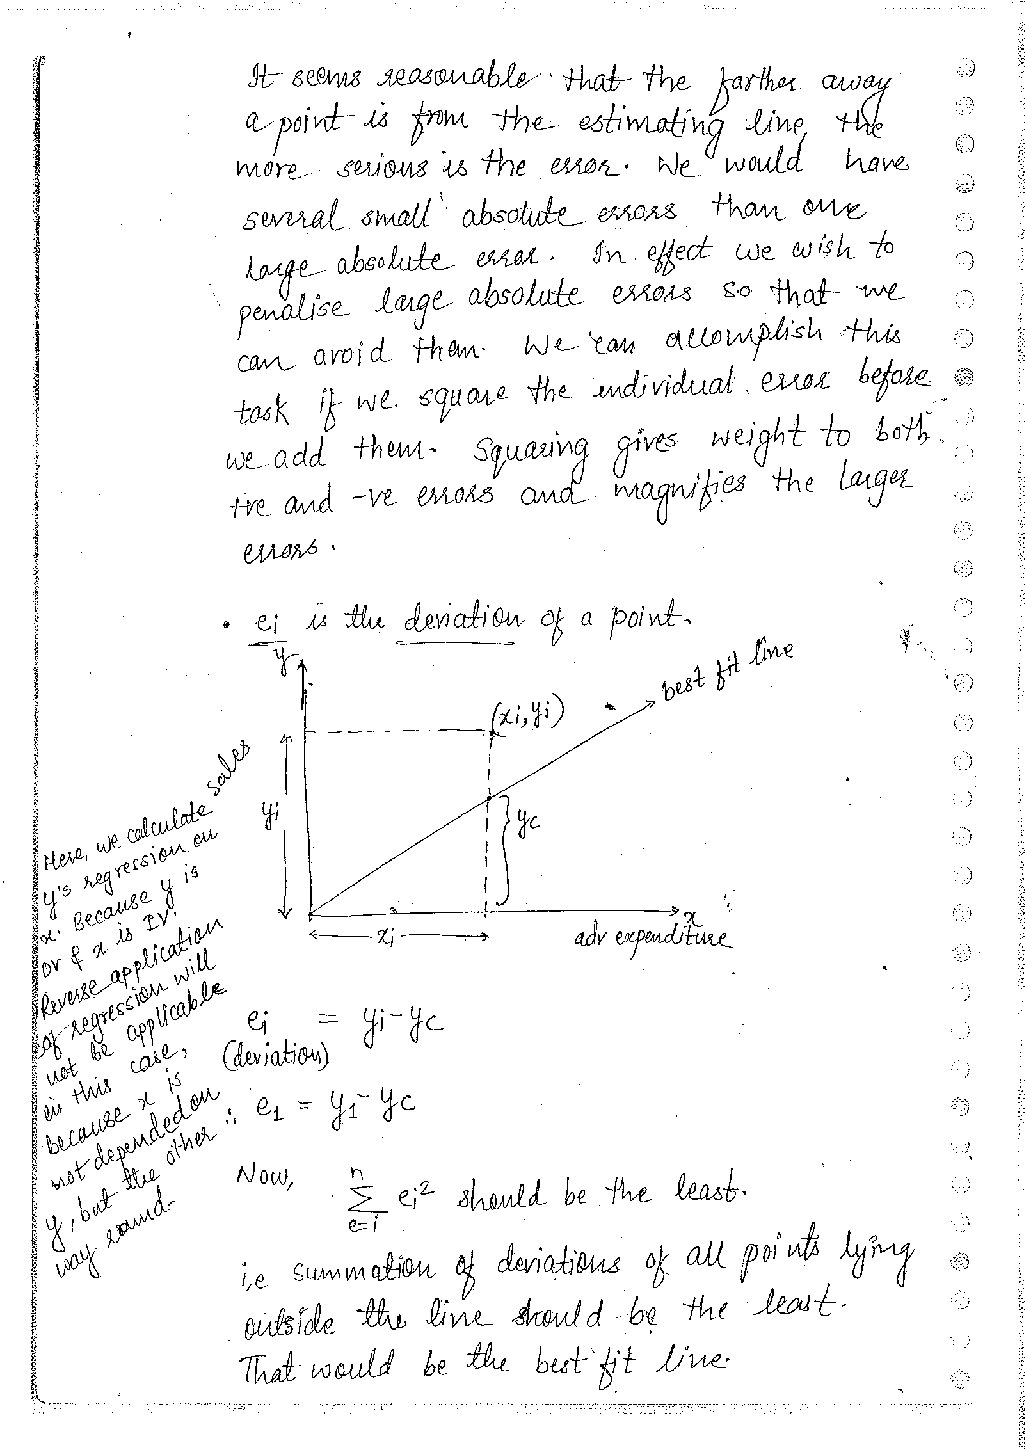 It seems reasonable that the farther away
a point is from the estimating line, the
more serious is the error. We would have
several small absolute errors than one
large absolute error. In effect we wish to
penalise large absolute errors so that we
can avoid them. We can accomplish this
task if we square the individual error before
we add them. Squaring gives weight to both
+ve and -ve errors and magnifies the larger
errors.
• ei is the deviation of a point.
y
best fit line
(xi, yi)
sales
yi
yc
x
xi
adv expenditure
Here, we calculate
y's regression on
x. Because y is
DV & x is IV.
Reverse application
of regression will
not be applicable
in this case,
because x is
not depended on
y, but the other
way round.
ei = yi - yc
(deviation)
∴ e1 = y1 - yc
Now, n
∑ ei² should be the least.
e=i
i.e summation of deviations of all points lying
outside the line should be the least.
That would be the best fit line.